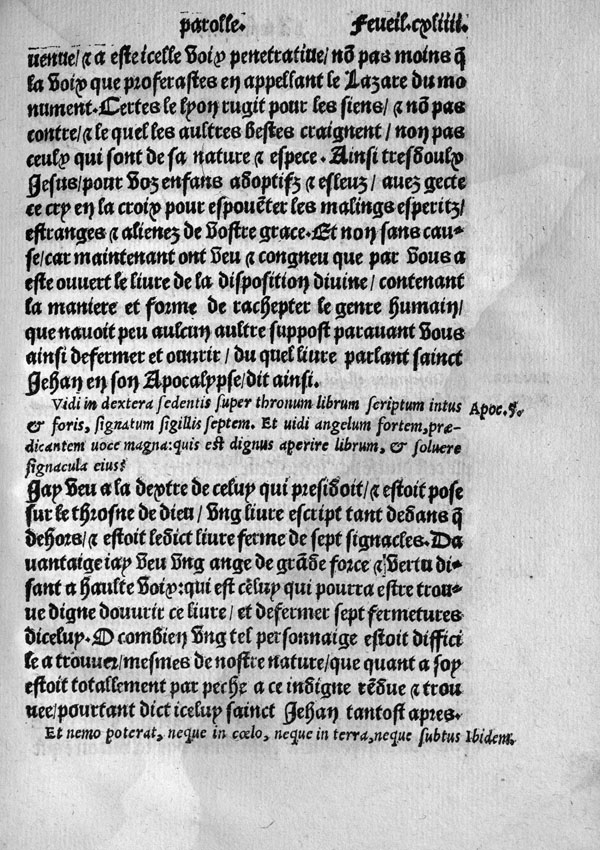 parolle. Feueil.cxliiii.
uenue/⁊ a este icelle voix penetratiue/ nõ pas moins q̃
la voix que proferastes en appellant le Lazare du mo
nument. Certes le lyon rugit pour les siens/ ⁊ nõ pas
contre/ ⁊ le quel les aultres bestes craignent/ non pas
ceulx qui sont de sa nature ⁊ espece. Ainsi tresdoulx
Jesus/pour voz enfans adoptifz ⁊ esleuz/ auez gecte
ce cry en la croix pour espouẽter les malings esperitz/
estranges ⁊ alienez de vostre grace. Et non sans cau-
se/car maintenant ont veu ⁊ congneu que par vous a
este ouvert le livre de la disposition divine/ contenant
la maniere et forme de rachepter le genre humain/
que navoit peu aulcun aultre suppost paravant vous
ainsi defermer et ouvrir/ du quel livre parlant sainct
Jehan en son Apocalypse/dit ainsi.
Vidi in dextera sedentis super thronum librum scriptum intus Apoc.5.
& foris, signatum sigillis septem. Et uidi angelum fortem, præ-
dicantem uoce magna: quis est dignus aperire librum, & soluere
signacula eius?
Jay veu a la dextre de celuy qui presidoit/⁊ estoit pose
sur le throsne de dieu/ vng livre escript tant dedans q̃
dehors/⁊ estoit ledict livre ferme de sept signacles. Da
vantaige iay veu vng ange de grãde force ⁊ vertu di-
sant a haulte voix: qui est celuy qui pourra estre trou-
ve digne douvrir ce livre/ et defermer sept fermetures
diceluy. O combien vng tel personnaige estoit diffici
le a trouver/mesmes de nostre nature/que quant a soy
estoit totallement par peche a ce indigne rẽdue ⁊ trou
vee/pourtant dict iceluy sainct Jehan tantost apres.
Et nemo poterat, neque in cœlo, neque in terra, neque subtus Ibidem.